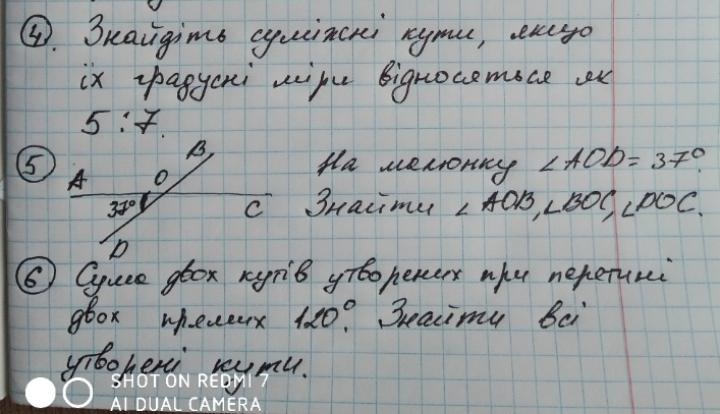 4. Знайдіть суміжні кути, якщо
їх градусні міри відносяться як
5:7.
5 На малюнку ∠AOD = 37°.
A O B
37° C
D
Знайти ∠AOB, ∠BOC, ∠DOC.
6 Сума двох кутів утворених при перетині
двох прямих 120°. Знайти всі
утворені кути.
SHOT ON REDMI 7
AI DUAL CAMERA